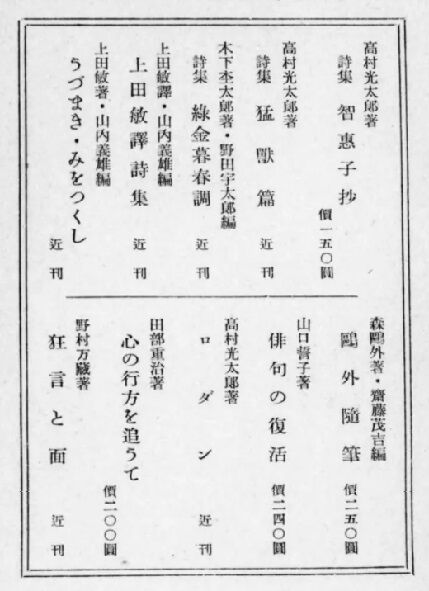 高村光太郎著
詩集 智惠子抄
價一五〇圓
高村光太郎著
詩集 猛獸篇 近刊
木下杢太郎著・野田宇太郎編
詩集 綠金暮春調 近刊
上田敏譯・山內義雄編
上田敏譯詩集 近刊
上田敏著・山內義雄編
うづまき・みをつくし
近刊
森鷗外著・齋藤茂吉編
鷗外隨筆 價二五〇圓
山口誓子著
俳句の復活 價二四〇圓
高村光太郎著
ロダン 近刊
田部重治著
心の行方を追うて
價二〇〇圓
野村万藏著
狂言と面 近刊